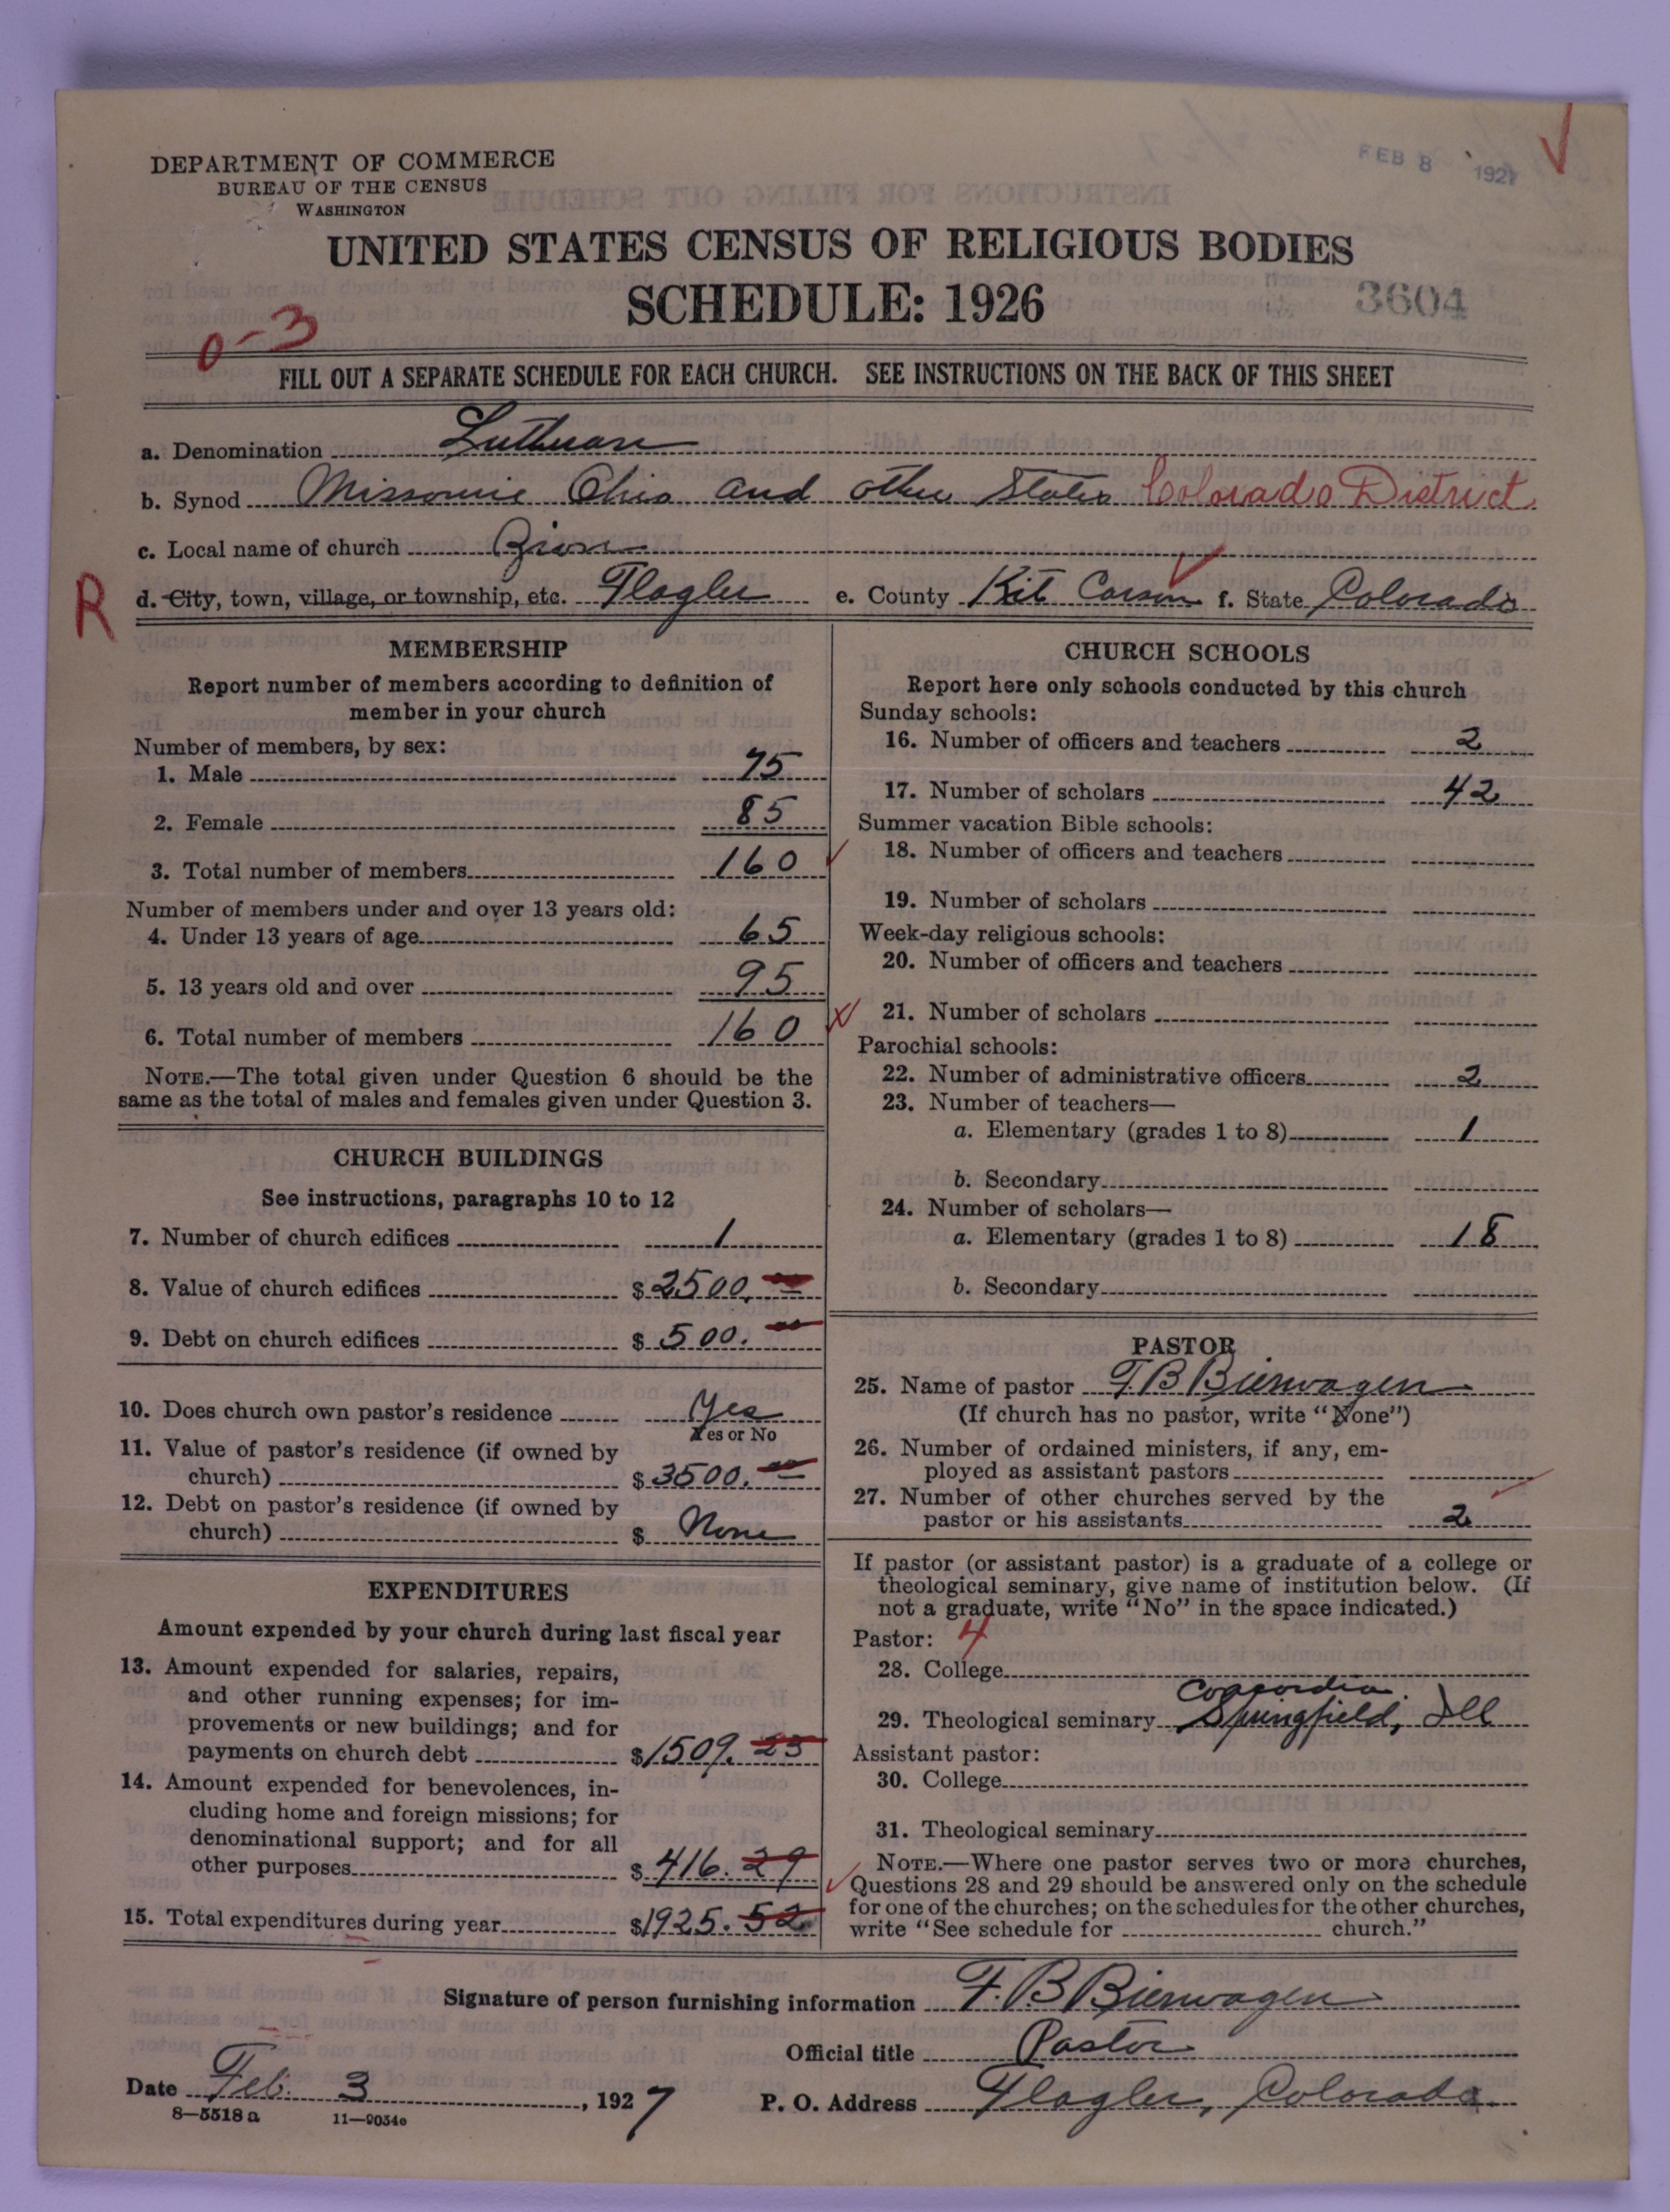 DEPARTMENT OF COMMERCE
BUREAU OF THE CENSUS
WASHINGTON
FEB 8 1927
UNITED STATES CENSUS OF RELIGIOUS BODIES
SCHEDULE: 1926
3604
0-3
FILL OUT A SEPARATE SCHEDULE FOR EACH CHURCH. SEE INSTRUCTIONS ON THE BACK OF THIS SHEET
a. Denomination Lutheran
b. Synod Missourie Ohio and other States Colorado District
c. Local name of church Zion
R
d. City, town, village, or township, etc. Flagler e. County Kit Carson f. State Colorado
MEMBERSHIP
Report number of members according to definition of
member in your church
Number of members, by sex:
1. Male 75
2. Female 85
3. Total number of members 160
Number of members under and over 13 years old:
4. Under 13 years of age 65
5. 13 years old and over 95
6. Total number of members 160
NOTE.—The total given under Question 6 should be the
same as the total of males and females given under Question 3.
CHURCH BUILDINGS
See instructions, paragraphs 10 to 12
7. Number of church edifices 1
8. Value of church edifices $ 2500.00
9. Debt on church edifices $ 500.00
10. Does church own pastor's residence Yes
Yes or No
11. Value of pastor's residence (if owned by
church) $ 3500.00
12. Debt on pastor's residence (if owned by
church) $ None
EXPENDITURES
Amount expended by your church during last fiscal year
13. Amount expended for salaries, repairs,
and other running expenses; for im-
provements or new buildings; and for
payments on church debt $ 1509.23
14. Amount expended for benevolences, in-
cluding home and foreign missions; for
denominational support; and for all
other purposes $ 416.29
15. Total expenditures during year $ 1925.52
CHURCH SCHOOLS
Report here only schools conducted by this church
Sunday schools:
16. Number of officers and teachers 2
17. Number of scholars 42
Summer vacation Bible schools:
18. Number of officers and teachers
19. Number of scholars
Week-day religious schools:
20. Number of officers and teachers
21. Number of scholars
Parochial schools:
22. Number of administrative officers 2
23. Number of teachers—
a. Elementary (grades 1 to 8) 1
b. Secondary
24. Number of scholars—
a. Elementary (grades 1 to 8) 18
b. Secondary
PASTOR
25. Name of pastor F. B Bierwagen
(If church has no pastor, write "None")
26. Number of ordained ministers, if any, em-
ployed as assistant pastors
27. Number of other churches served by the
pastor or his assistants 2
If pastor (or assistant pastor) is a graduate of a college or
theological seminary, give name of institution below. (If
not a graduate, write "No" in the space indicated.)
Pastor: 4
28. College
Concordia
29. Theological seminary Springfield, Ill
Assistant pastor:
30. College
31. Theological seminary
NOTE.—Where one pastor serves two or more churches,
Questions 28 and 29 should be answered only on the schedule
for one of the churches; on the schedules for the other churches,
write "See schedule for church."
Signature of person furnishing information F. B Bierwagen
Official title Pastor
Date Feb. 3, 1927 P. O. Address Flagler, Colorado
8—5518a 11—9034e